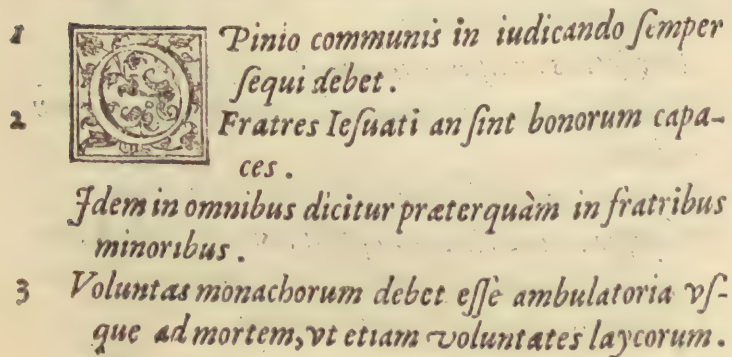 1 OPinio communis in iudicando ſemper
ſequi debet.
2 Fratres Ieſuati an ſint bonorum capa-
ces.
Idem in omnibus dicitur præterquàm in fratribus
minoribus.
3 Voluntas monachorum debet eſſe ambulatoria vſ-
que ad mortem, vt etiam voluntates laycorum.